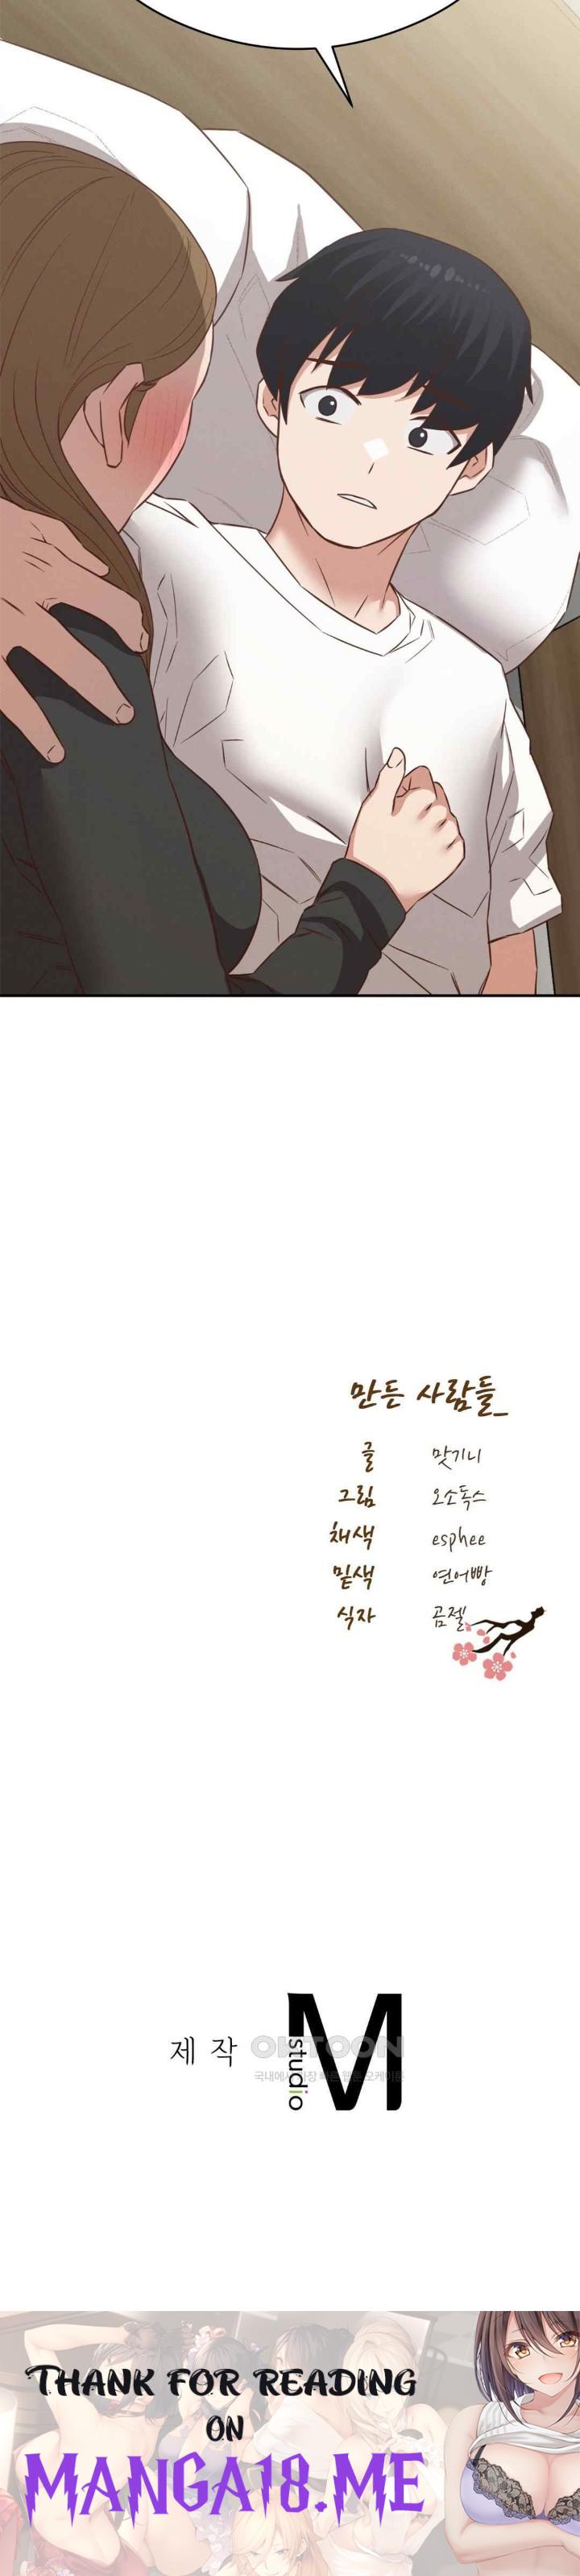 만든 사람들_
글 맛기니
그림 오소독스
채색 esphee
밑색 연어빵
식자 곰젤
제작
M
studio
THANK FOR READING
ON
MANGA18.ME